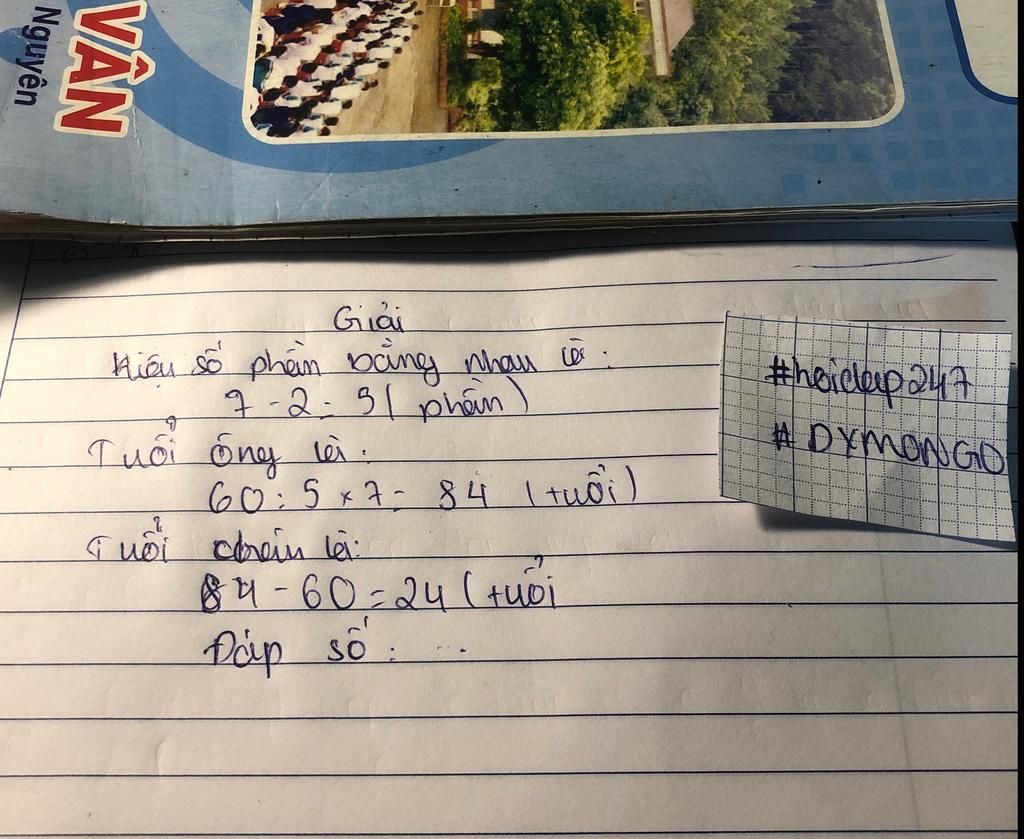 VĂN
Nguyên
Giải
Hiệu số phần bằng nhau là:
7 - 2 = 5 ( phần )
Tuổi ông là:
60 : 5 x 7 = 84 ( tuổi )
Tuổi cháu là:
84 - 60 = 24 ( tuổi
Đáp số : ...
#hoidap247
# DYMONGO